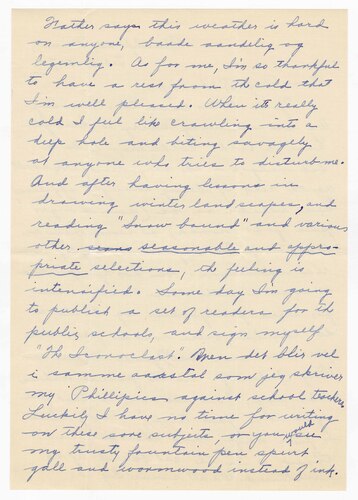 Father says this weather is hard
on anyone, baade aandelig og
legemlig. As for me, I'm so thankful
to have a rest from the cold that
I'm well pleased. When it's really
cold I feel like crawling into a
deep hole and biting savagely
at anyone who tries to disturb me.
And after having lessons in
drawing winter landscapes, and
reading "Snow bound" and various
other seasonable and appro-
priate selections, the feeling is
intensified. Some day I'm going
to publish a set of readers for th
public schools, and sign myself
"The Iconoclast". Men det blir vel
i samme aarstal som jeg skriver
my Phillipics against school teachers
Luckily I have no time for writing
on these sore subjects, or you would see
my trusty fountain pen spurt
gall and wormwood instead of ink.